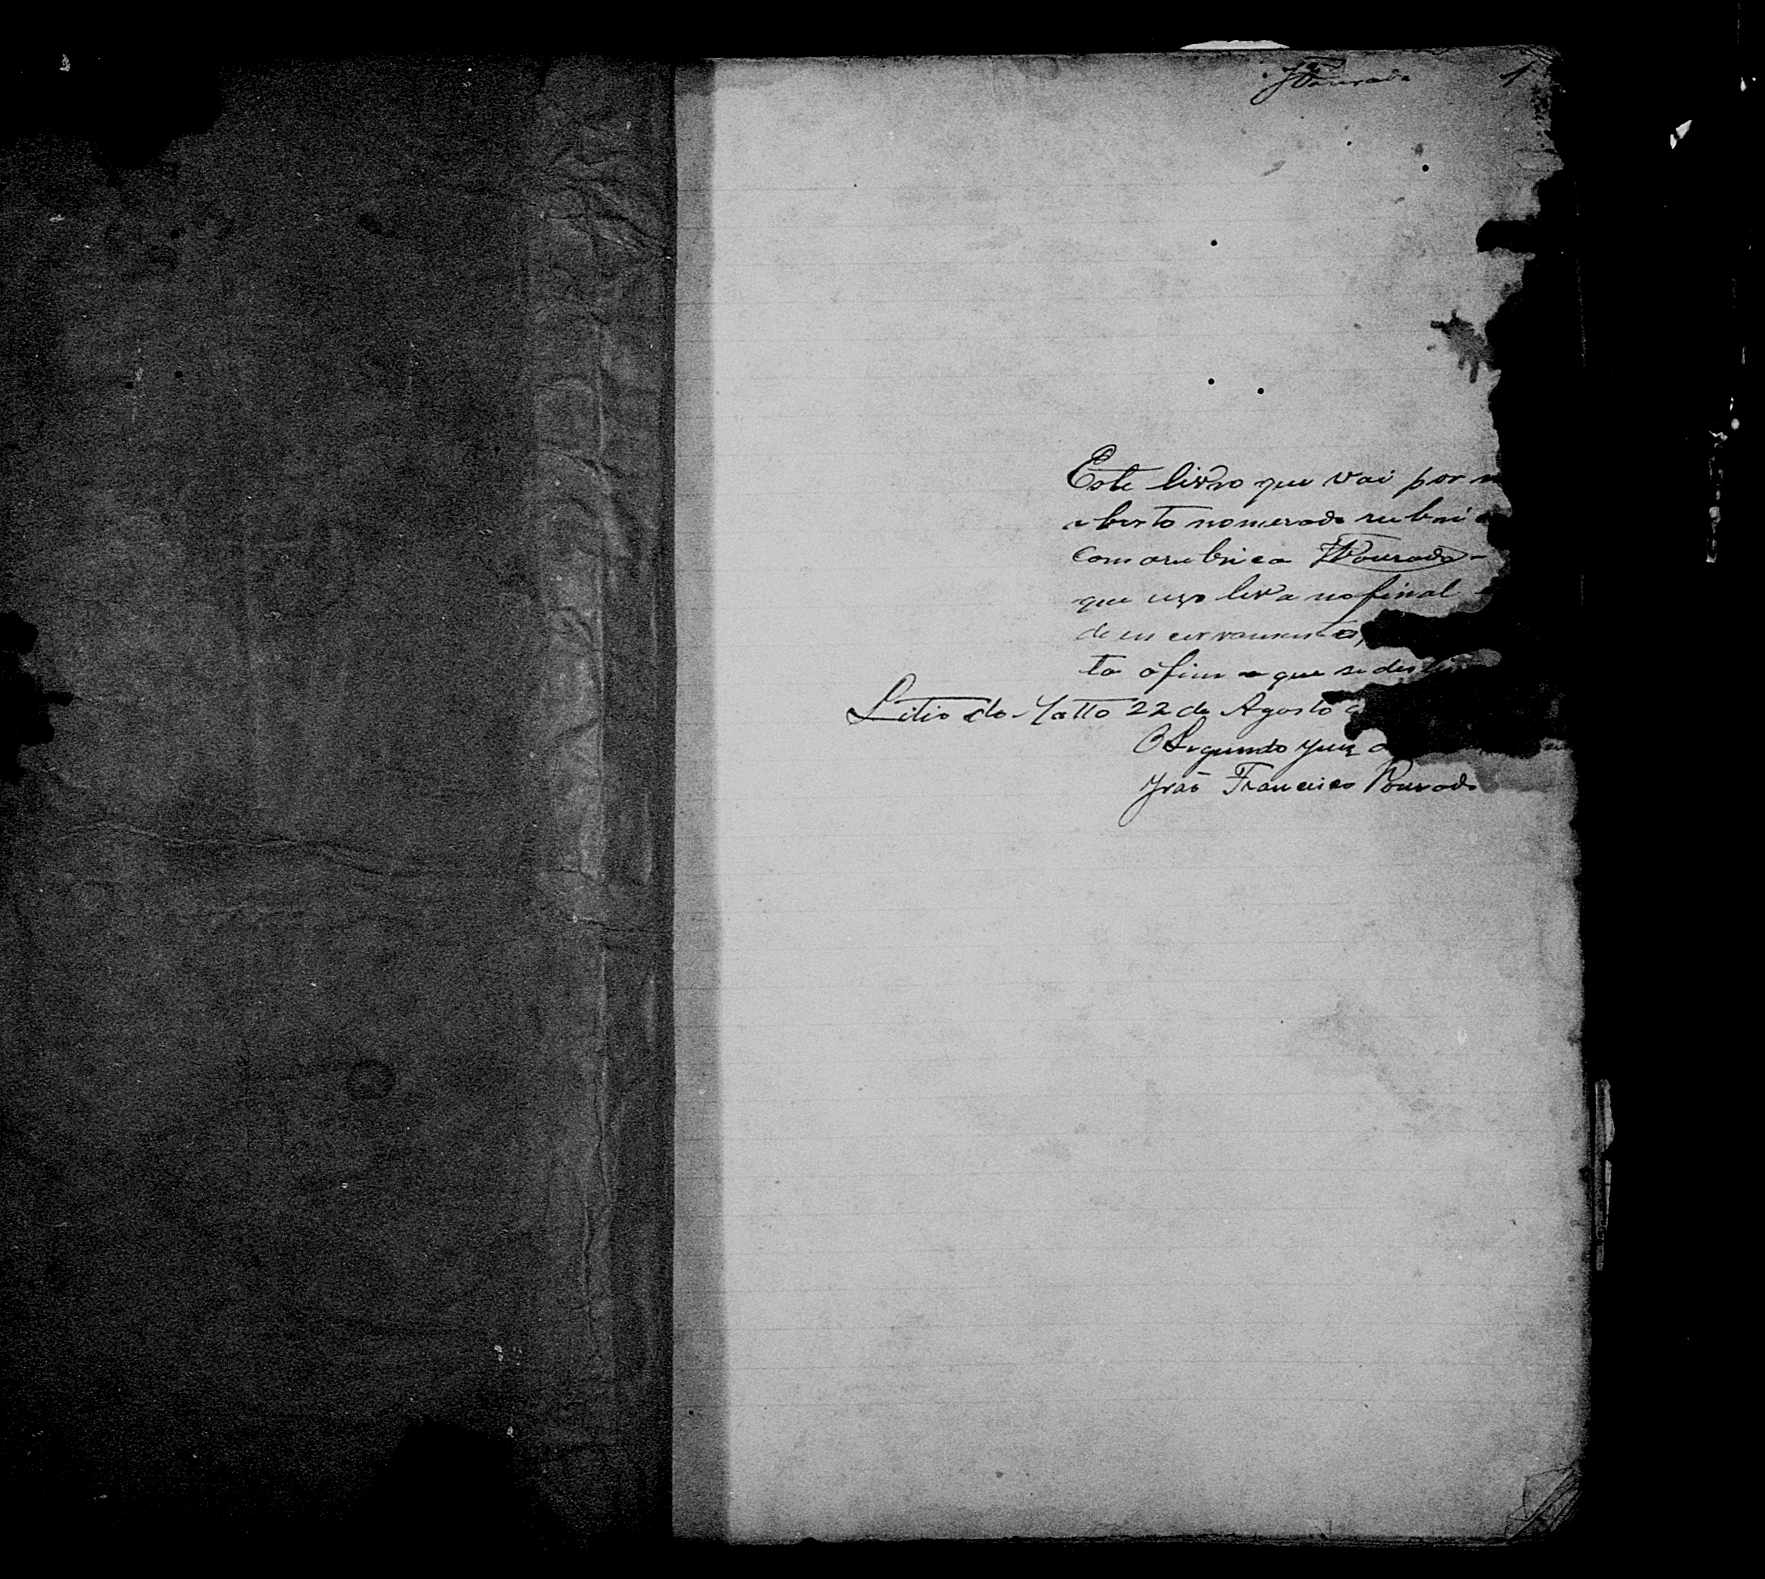 JFDourado 1
Este livro que vai por m
aberto nomerado rubri
com arubrica JFDourado
que uzo leva no final
de encerramento,
to o fim a que se des
Sitio do Matto 22 de Agosto
O Segundo Juiz
João Francisco Dourado